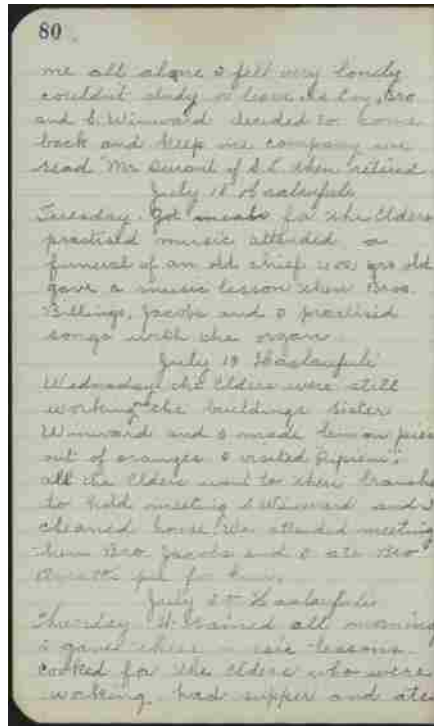 80
me all alone & felt very lonely
couldnt study or learn, as Bro
and S. Winward decided to come
back and keep me company we
read Mr of S.L. then retired
July 18
Tuesday Got meals for the Elders
practised music attended a
funeral of an old chief 100 yrs old
gave a music lesson then Bros.
Billings, Jacobs and I practised
songs with the organ
July 19 Haalaufuli
Wednesday the Elders were still
working on the buildings Sister
Winward and I made lemon pies
out of oranges & visited
all the Elders went to their branches
to hold meeting S Winward and I
cleaned house. We attended meeting
then Bro. Jacobs and I ate Bro
pie for him.
July 20 Haalaufuli
Thursday It rained all morning
I gave three lessons
cooked for the Elders who were
working. had supper and ate